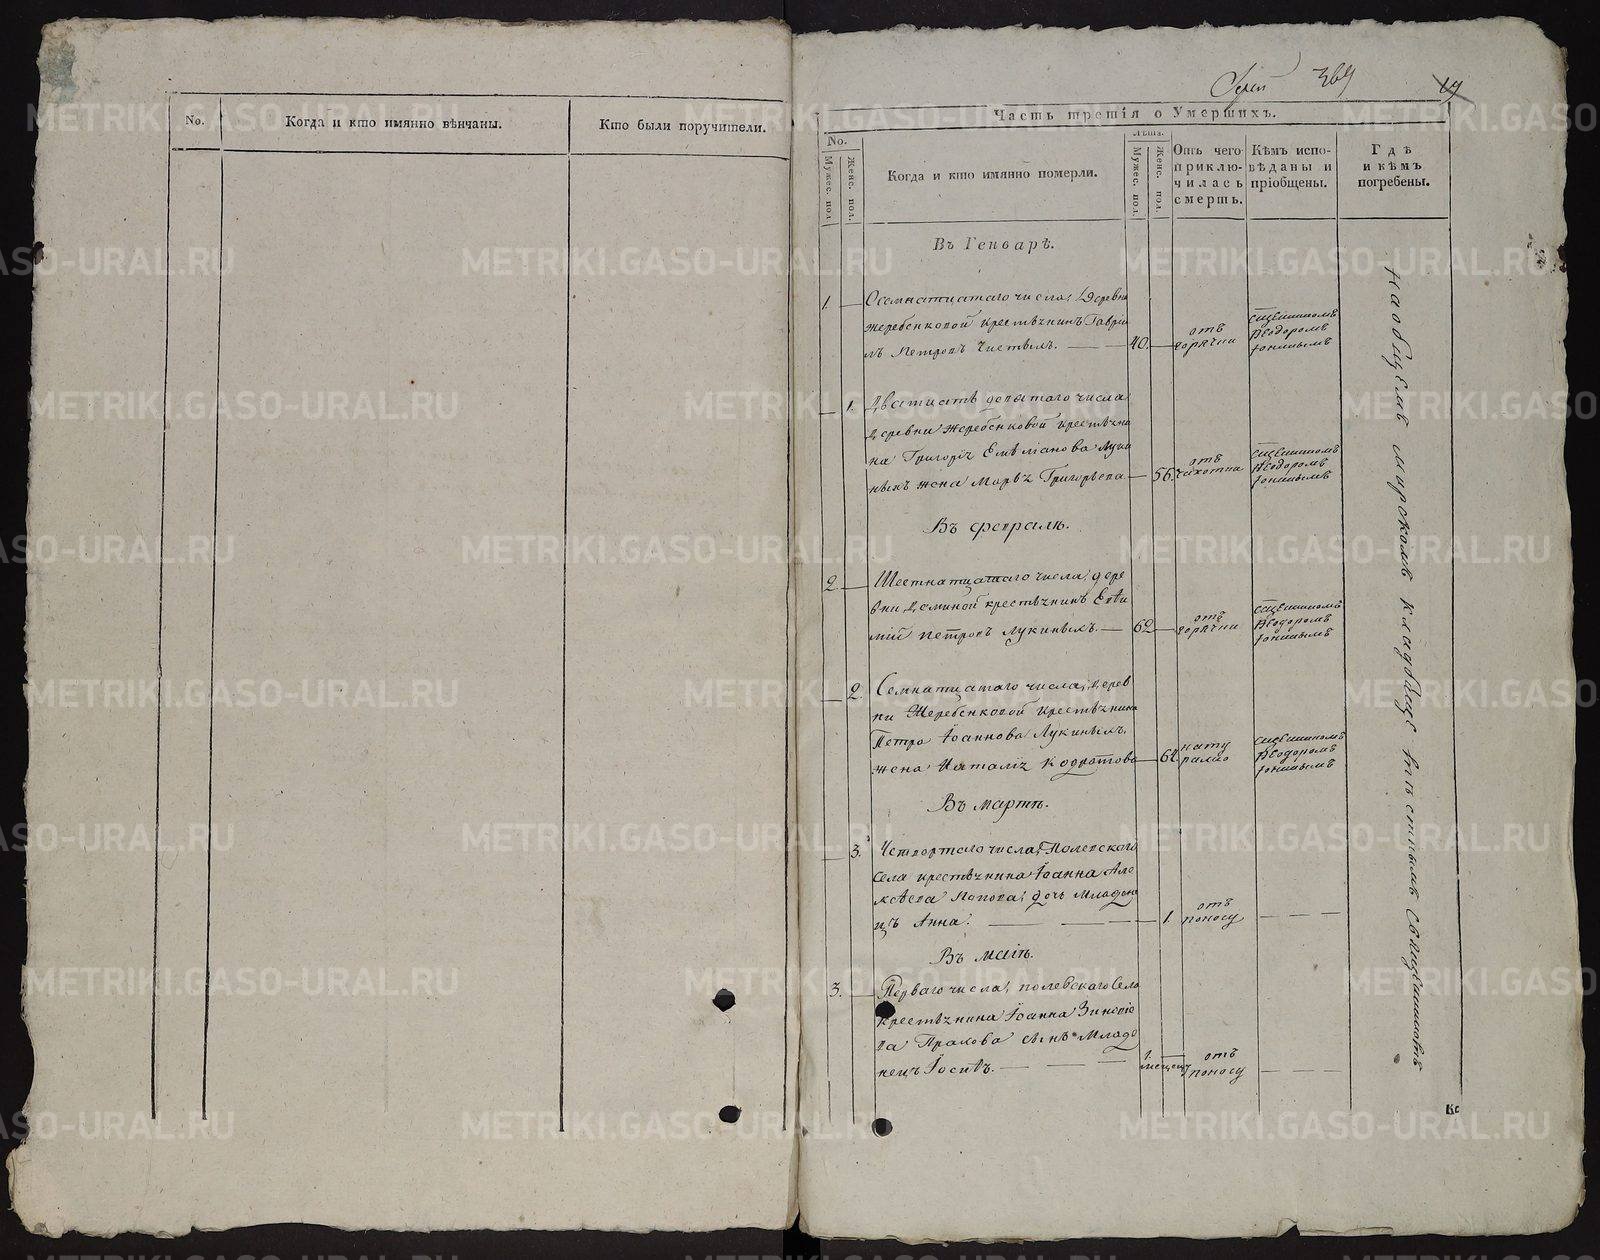 No.
Когда и кто имянно вѣнчаны.
Кто были поручители.
369
19
Часть третія о Умершихъ.
No.
Мужес. пол.
Женс. пол.
Когда и кто имянно померли.
Лѣта.
Мужес. пол.
Женс. пол.
Отъ чего
приклю-
чилась
смерть.
Кѣмъ испо-
вѣданы и
пріобщены.
Гдѣ
и кѣмъ
погребены.
Въ Генварѣ.
1.
Осемнатцатаго числа, деревни
Жеребенковой крестьянинъ Гаврі
лъ Петровъ Чистыхъ.
40.
отъ
горячки
священникомъ
Ѳеодоромъ
1.
Дватцать девятаго числа
деревни Жеребенковой крестьяни
на Григорія Емѣлианова Луки
ныхъ жена Марѳа Григорьева
56.
отъ
чахотки
священникомъ
Ѳеодоромъ
Въ Февралѣ.
2.
Шестнатцатаго числа, дере
вни Деминой крестьянинъ Евѳи
мій Петровъ Лукиныхъ.
62
отъ
горячки
священникомъ
Ѳеодоромъ
2.
Семнатцатаго числа, дерев
ни Жеребенковой крестьянина
Петра Іоаннова Лукиныхъ
жена Наталія Кодратова
64.
нату
рално
священникомъ
Ѳеодоромъ
Въ Мартѣ.
3.
Четвертаго числа, Полевского
села крестьянина Іоанна Але
ксѣева Попова, дочь младен
ицъ Анна.
1.
отъ
поносу
Въ Маіѣ.
3.
Перваго числа, Полевского села
крестьянина Іоанна Зиновіе
ва сынъ Младе
нецъ Іосифъ.
1.
месецъ
отъ
поносу
на общемъ мирскомъ кладбище священникомъ
METRIKI.GASO-URAL.RU